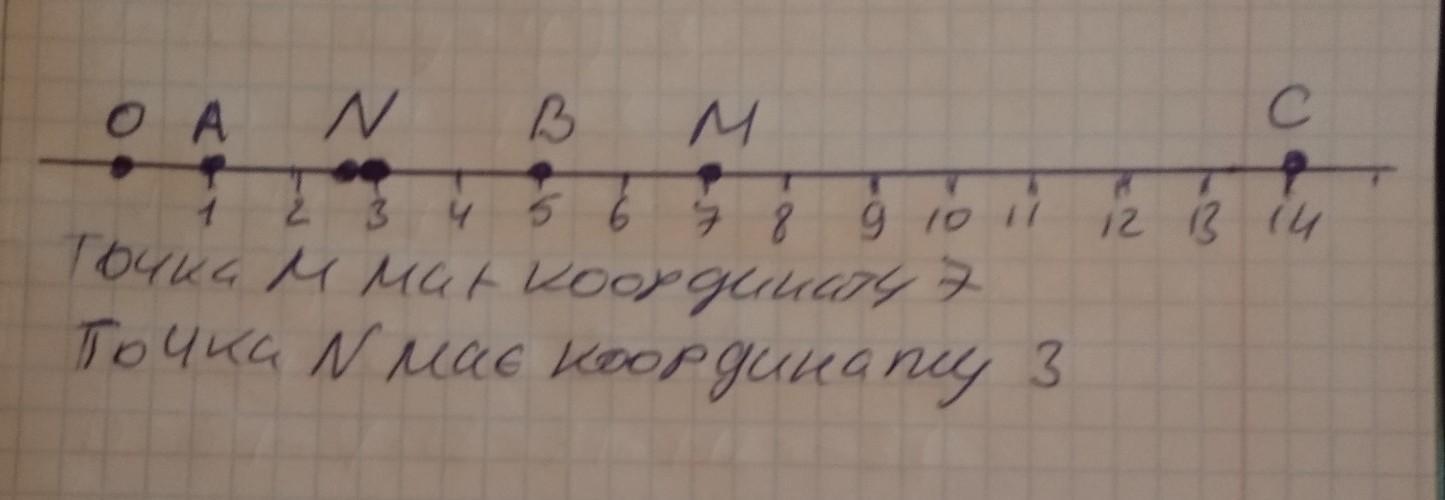 O A N B M C
1 2 3 4 5 6 7 8 9 10 11 12 13 14
Точка M має координату 7
Точка N має координату 3